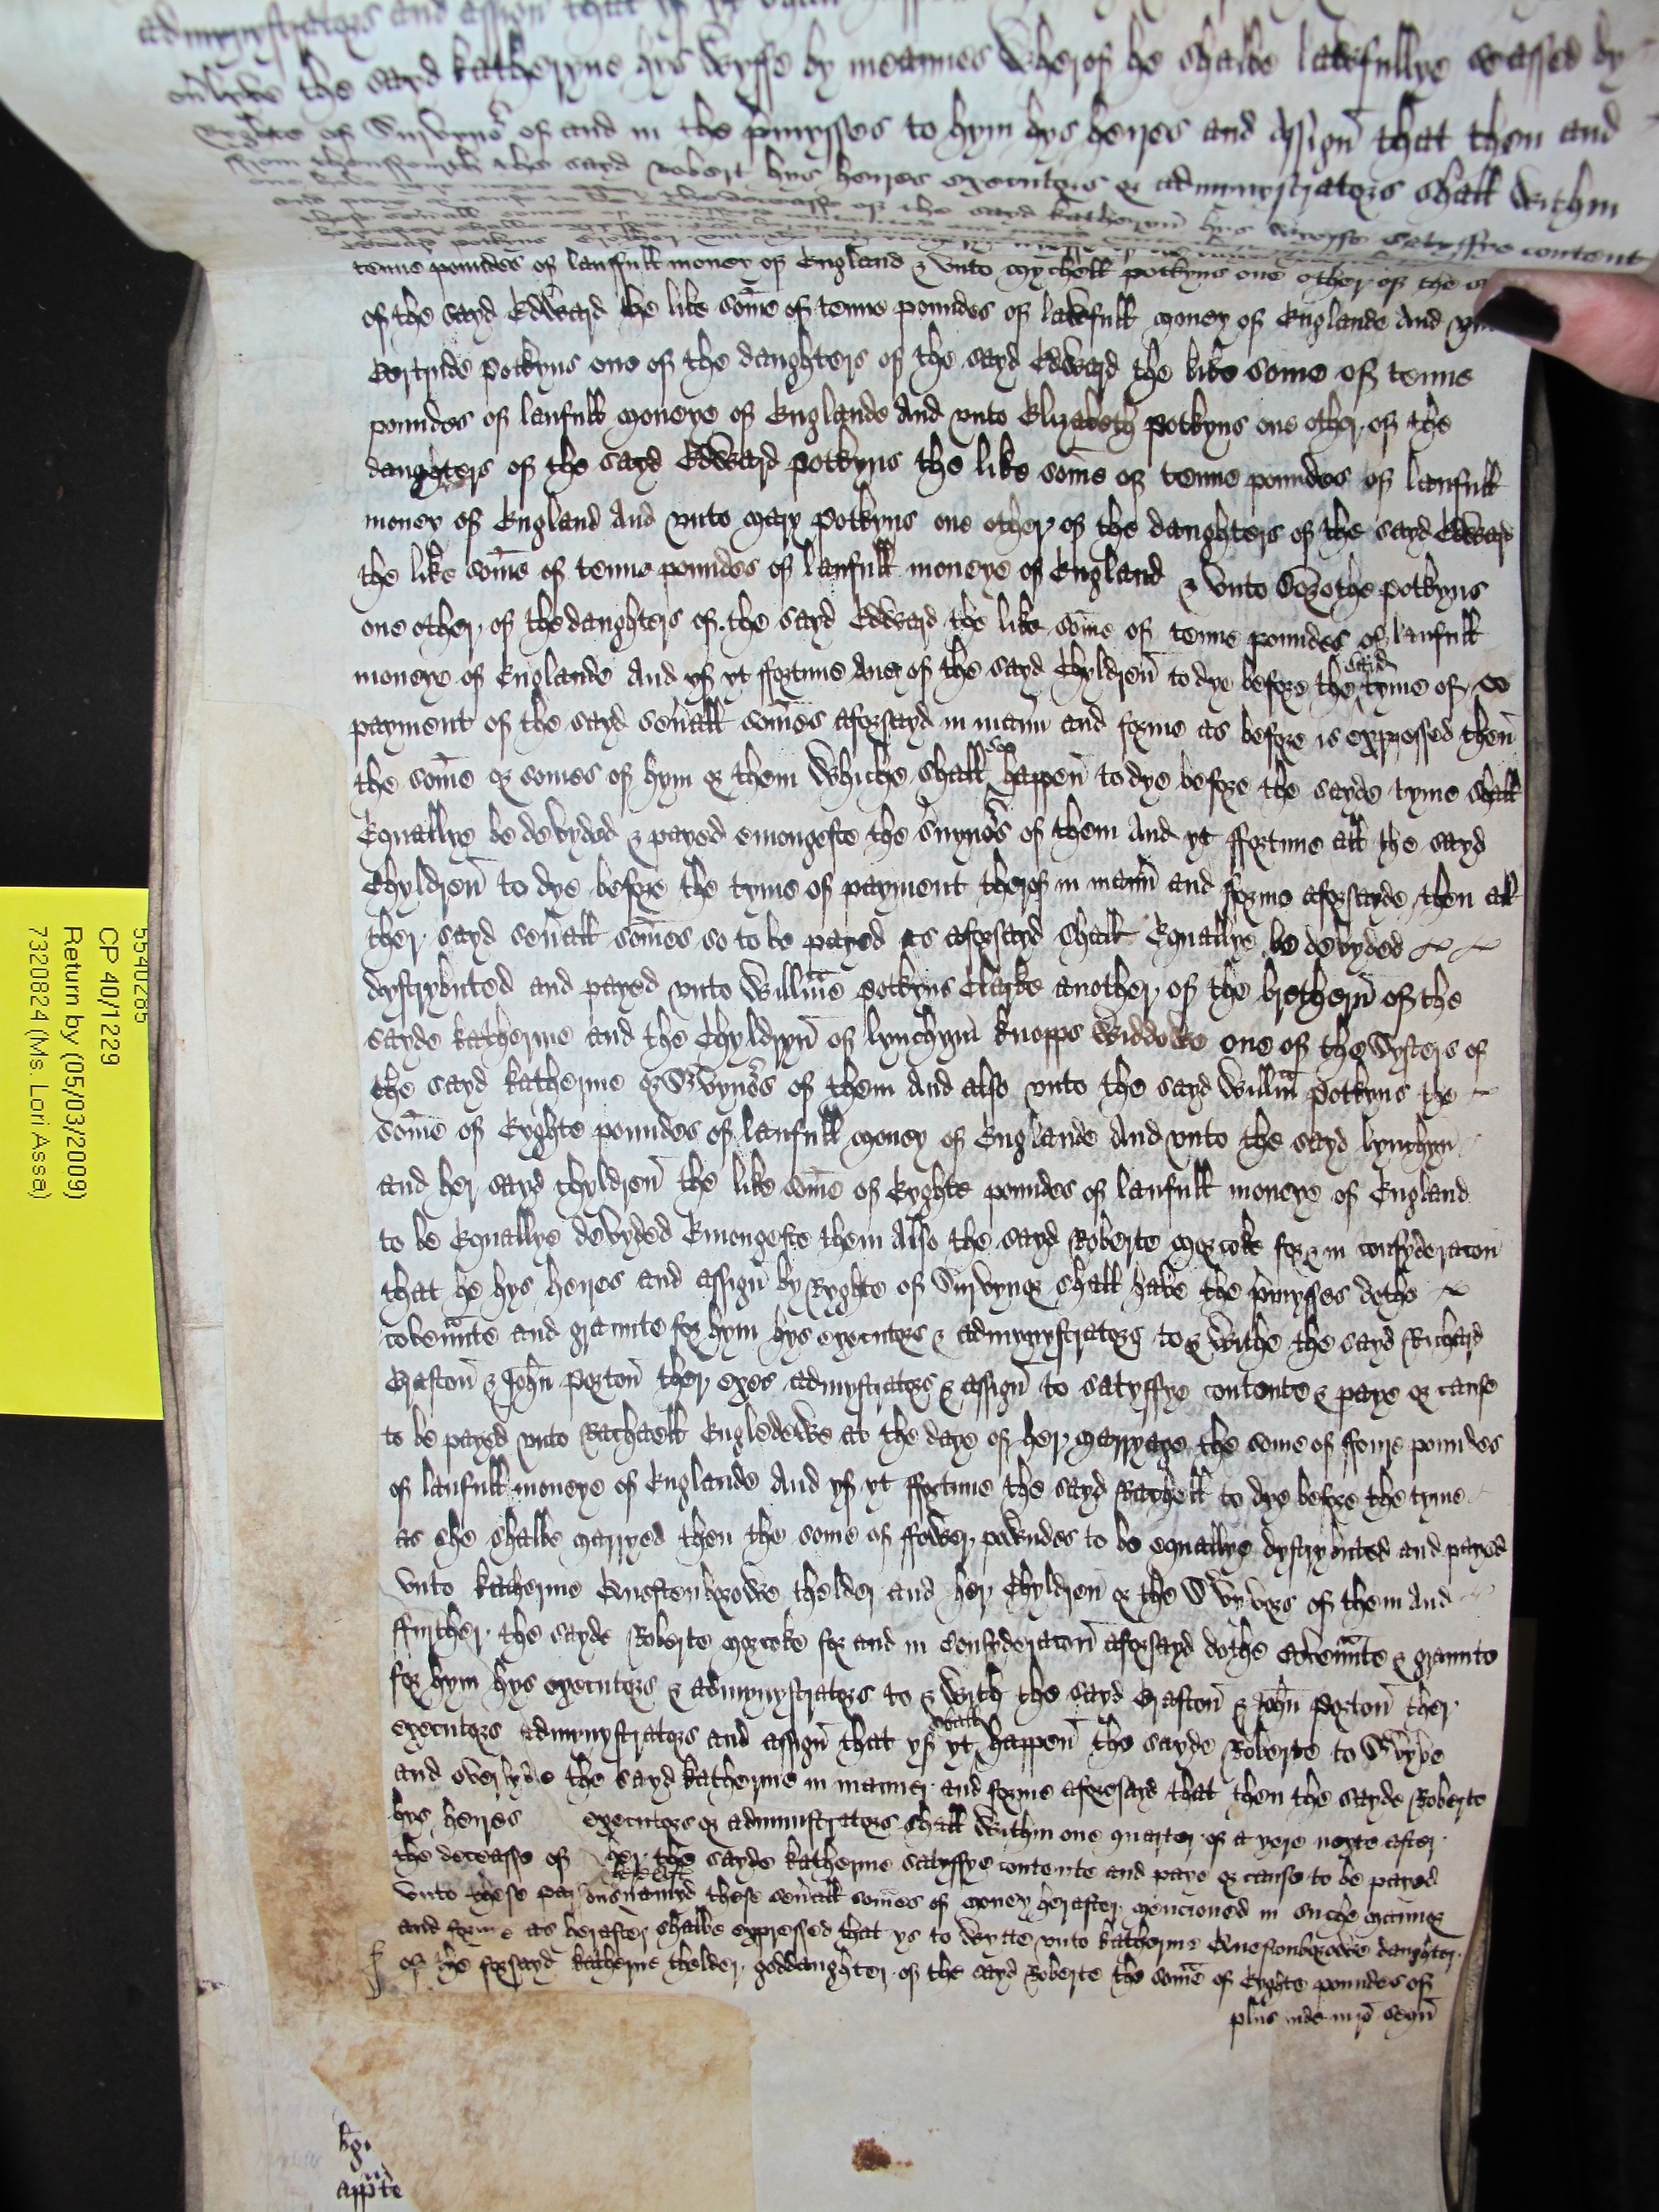 admynystrators and assign that yf yt
the sayd Katheryne hys Wyffe by meannes Wherof he shalbe lawfullye seassed by
Ryghte of Survyvor of and in the pmysses to hym hys heires and Assign that then and
from thensforth the sayd Robert hys heires executors or admynystrators shall within
of the sayd Katheryn hys Wyffe satysffye content
tenne poundes of laufull money of England & vnto Mychell Potkyns one other of the
of the sayd Edward the like some of tenne poundes of lawfull money of Englande And vn
Gertrude Potkyns one of the daughters of the sayd Edward the like some of tenne
poundes of laufull moneye of Englande And vnto Elizabeth Potkyns one other of the
daughters of the sayd Edward Potkyns the like some of tenne poundes of laufull
money of England And vnto Mary Potkyns one other of the daughters of the sayd Edward
the like some of tenne poundes of laufull moneye of England & vnto Potkyns
one other of the daughters of the sayd Edward the like some of tenne poundes of laufull
moneye of Englande And yf yt ffortune Aney of the sayd Chyldren to dye before the said tyme of
payment of the sayd seuall somes aforsayd in mann and forme as before is expressed then
the some or somes of hym or them Whiche shall soo happen to dye before the sayde tyme shall
Equallye be devyded & payed emongeste the of them And yt ffortune all the sayd
Chyldren to dye before the tyme of payment therof in mann and forme aforsayde then all
ther sayd seuall somes so to be payed as aforsayd shall Equallye be devyded
dystrybuted and payed vnto Willme Potkyns Clarke another of the brethern of the
sayde Katherine and the Chyldryn of Lynchyn Knopps Widdowe one of the Systers of
the sayd Katherine or of them And also vnto the sayd Willm Potkyns the
some of Eyghte poundes of laufull money of Englande And vnto the sayd Lynchyn
and her sayd chyldren the like some of Eyghte poundes of laufull moneye of England
to be Equallye devyded Emongeste them Also the sayd Roberte Morcoke for & in consyderacon
that he hys heires and assign by Ryghte of Survyvor shall have the pmysses dothe
covennte and graunte for hym hys executors & admynystrators to & withe the sayd Richard
Graston & John Porton ther exes admystrators & assign to satysffye contente & paye or cause
to be payed vnto Rachaell Engledewe at the daye of her marryage the some of ffoure poundes
of laufull moneye of Englande And yf yt ffortune the sayd Rachell to dye before the tyme
as she shalbe marryed then the some of ffower powndes to be equallye dystrybuted and payed
vnto Katherine thelder and her Chyldren or the of them And
ffurther the sayde Roberte Morcoke for and in Consyderacon aforsayd dothe Covennte & graunte
for hym hys executors & admynystrators to & with the sayd Graston & John Porton ther
executors admynystrators and assign that yf yt shall happen the sayde Roberte to
and overlyve the sayd Katherine in manner and forme aforesayd that then the sayde Roberte
hys heires executors or administrators shall within one quarter of a yere nexte after
the deceasse of her the sayde Katherine satysffye contente and paye or cause to be payed
vnto these namyd these seuall somes of money herafter mencioned in suche manner
and forme as herafter shalbe expressed that ys to wytte vnto Katherine daughter
of the forsayd Katherine thelder goddaughter of the sayd Roberte the some of Eyghte poundes of
plus inde
5540285
CP 40/1229
Return by (05/03/2009)
7320824 (Ms. Lori Assa)